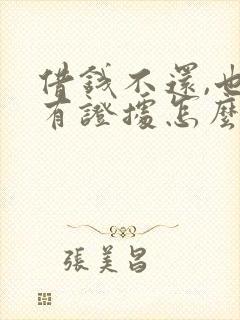 借錢不還,也
有證據怎麼
張美昌